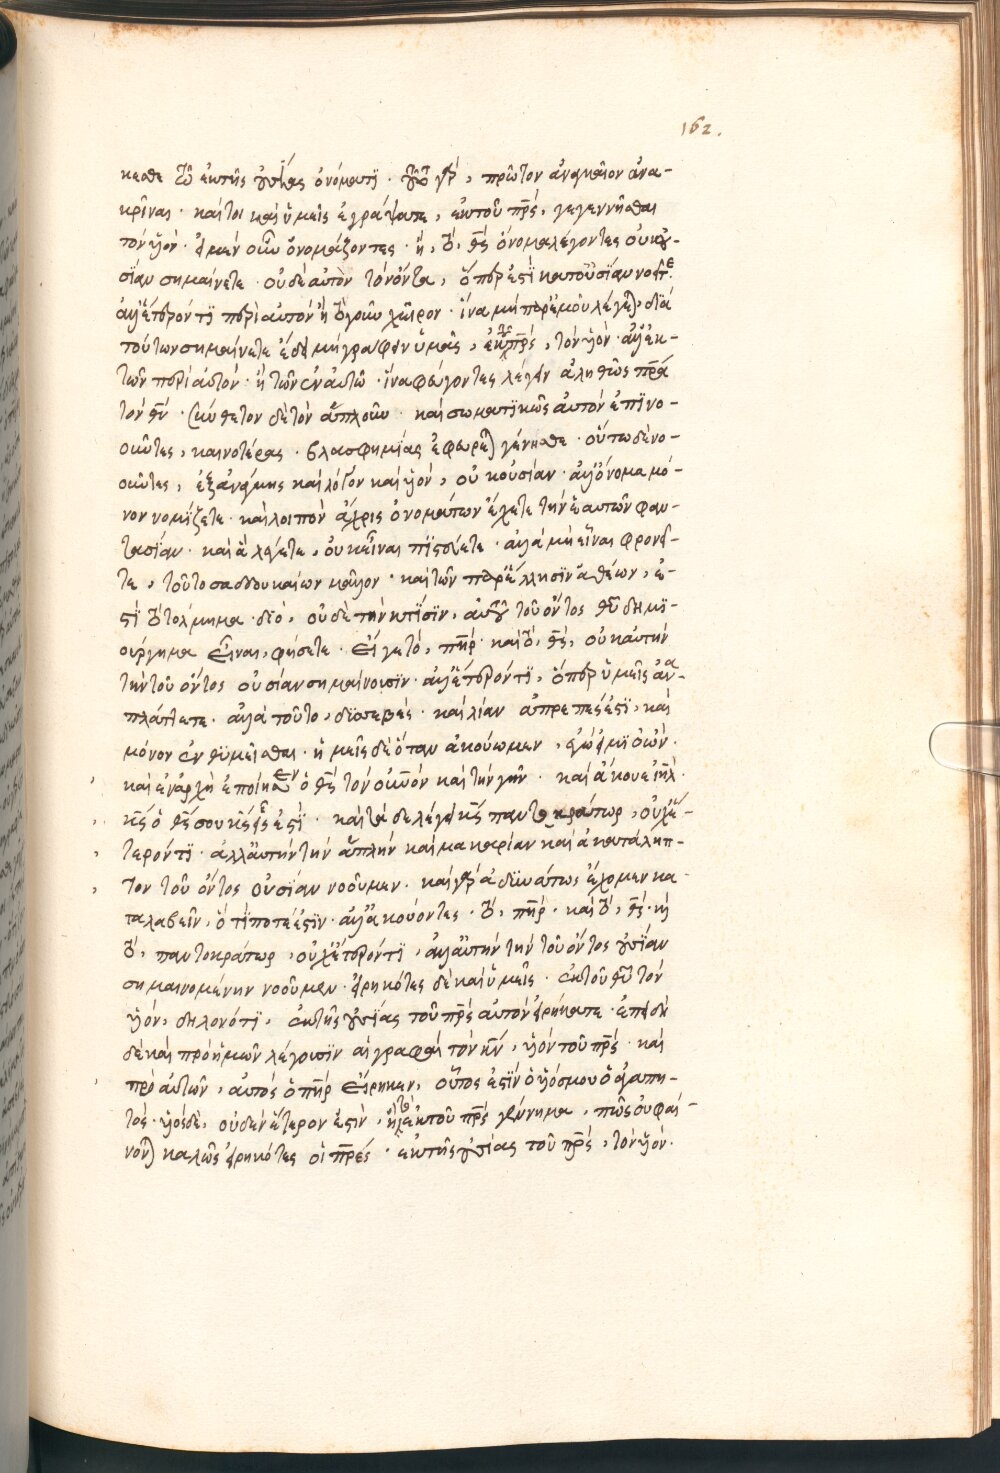 162.
κεσθε τῶ ἐκ τῆς οὐσίας ὀνόματι · τοῦτο γὰρ, πρῶτον ἀναγκαῖον ἀνα-
κρῖναι · καίτοι καὶ ὑμεῖς ἐγράψατε, ἐκ τοῦ πρς, γεγεννῆσθαι
τὸν υἱὸν · εἰ μὲν οὖν ὀνομάζοντες · ἢ, τὸ, θς ὄνομα λέγοντες οὐκ οὐ-
σίαν σημαίνετε οὐδὲ αὐτὸν τὸν ὄντα, ὅπερ ἐστὶ κατ' οὐσίαν νοεῖτε
ἀλλ' ἕτερόν τι περὶ αὐτὸν ἢ τὸ γοῦν χεῖρον · ἵνα μὴ παρ' ἐμοῦ λέγηται, διὰ
τούτων σημαίνετε ἔδει μὴ γράφειν ὑμᾶς, ἐκ τοῦ πρς, τὸν υἱὸν · ἀλλ' ἐκ
τῶν περὶ αὐτὸν · ἢ τῶν ἐν αὐτῶ · ἵνα φεύγοντες λέγειν ἀληθῶς πρα
τὸν θν · σύνθετον δὲ τὸν ἁπλοῦν · καὶ σωματικῶς αὐτὸν ἐπινο-
οῦντες, καινοτέρας · βλασφημίας ἐφευρεταὶ γένησθε · οὕτω δὲ νο-
οῦντες, ἐξ ἀνάγκης καὶ λόγον καὶ υἱὸν, οὐκ οὐσίαν · ἀλλ' ὄνομα μό-
νον νομίζετε · καὶ λοιπὸν ἄχρις ὀνομάτων ἔχετε τὴν ἑαυτῶν φαν-
τασίαν · καὶ ἃ λέγετε, οὐκ εἶναι πιστεύετε · ἀλλὰ μὴ εἶναι φρονεῖ-
τε, τοῦτο σαδδουκαίων μᾶλλον · καὶ τῶν παρ' ἕλλησιν ἀθέων, ἐ-
στὶ τὸ τόλμημα · διὸ, οὐδὲ τὴν κτίσιν, αὐτοῦ τοῦ ὄντος θυ δημι-
ούργημα εἶναι, φήσετε · εἴ γε τὸ, πηρ · καὶ τὸ, θς, οὐκ αὐτὴν
τὴν τοῦ ὄντος οὐσίαν σημαίνουσιν · ἀλλ' ἕτερόν τι, ὅπερ ὑμεῖς ἀνα-
πλάττετε · ἀλλὰ τοῦτο, δυσσεβὲς · καὶ λίαν ἀπρεπές ἐστι, καὶ
μόνον ἐνθυμεῖσθαι · ἡμεῖς δὲ ὅταν ἀκούωμεν, ἐγώ εἰμι ὁ ὤν ·
καὶ ἐν ἀρχῆ ἐποίησεν ὁ θς τὸν οὐνὸν καὶ τὴν γῆν · καὶ ἄκουε ιηλ ·
κς ὁ θς σου κς εἷς ἐστι · καὶ τάδε λέγει κς παντοκράτωρ, οὐχ ἕ-
τερόν τι · ἀλλ' αὐτὴν τὴν ἁπλῆν καὶ μακαρίαν καὶ ἀκατάληπ-
τον τοῦ ὄντος οὐσίαν νοοῦμεν · κἂν γὰρ ἀδυνάτως ἔχομεν κα-
ταλαβεῖν, ὅ τί ποτέ ἐστιν · ἀλλ' ἀκούοντες · τὸ, πηρ · καὶ τὸ, θς · καὶ
τὸ, παντοκράτωρ, οὐχ ἕτερόν τι, ἀλλ' αὐτὴν τὴν τοῦ ὄντος οὐσίαν
σημαινομένην νοοῦμεν · εἰρηκότες δὲ καὶ ὑμεῖς · ἐκ τοῦ θυ τὸν
υἱὸν, δηλονότι, ἐκ τῆς οὐσίας τοῦ πρς αὐτὸν εἰρήκατε · ἐπειδὴ
δὲ καὶ πρὸ ἡμῶν λέγουσιν αἱ γραφαὶ τὸν κν, υἱὸν τοῦ πρς · καὶ
πρὸ αὐτῶν, αὐτὸς ὁ πηρ εἴρηκεν, οὗτος ἐστὶν ὁ υἱός μου ὁ ἀγαπη-
τός · υἱὸς δὲ, οὐδὲν ἕτερον ἐστὶν, ἢ τὸ ἐκ τοῦ πρς γέννημα, πῶς οὐ φαί-
νονται καλῶς εἰρηκότες οἱ πρες · ἐκ τῆς οὐσίας τοῦ πρς, τὸν υἱὸν ·